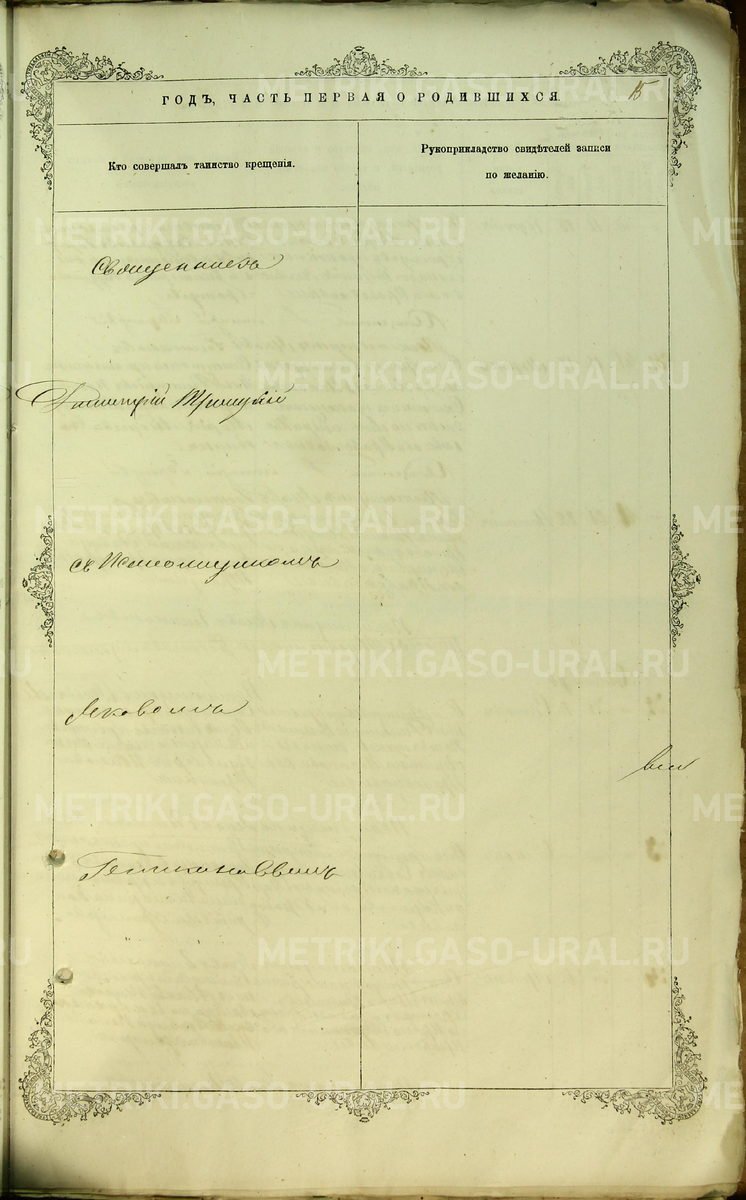 ГОДЪ, ЧАСТЬ ПЕРВАЯ О РОДИВШИХСЯ.
15
Кто совершалъ таинство крещенія.
Рукоприкладство свидѣтелей записи
по желанію.
Священникъ
Димитрій Троицкій
съ Псаломщикомъ
Яковомъ
METRIKI.GASO-URAL.RU